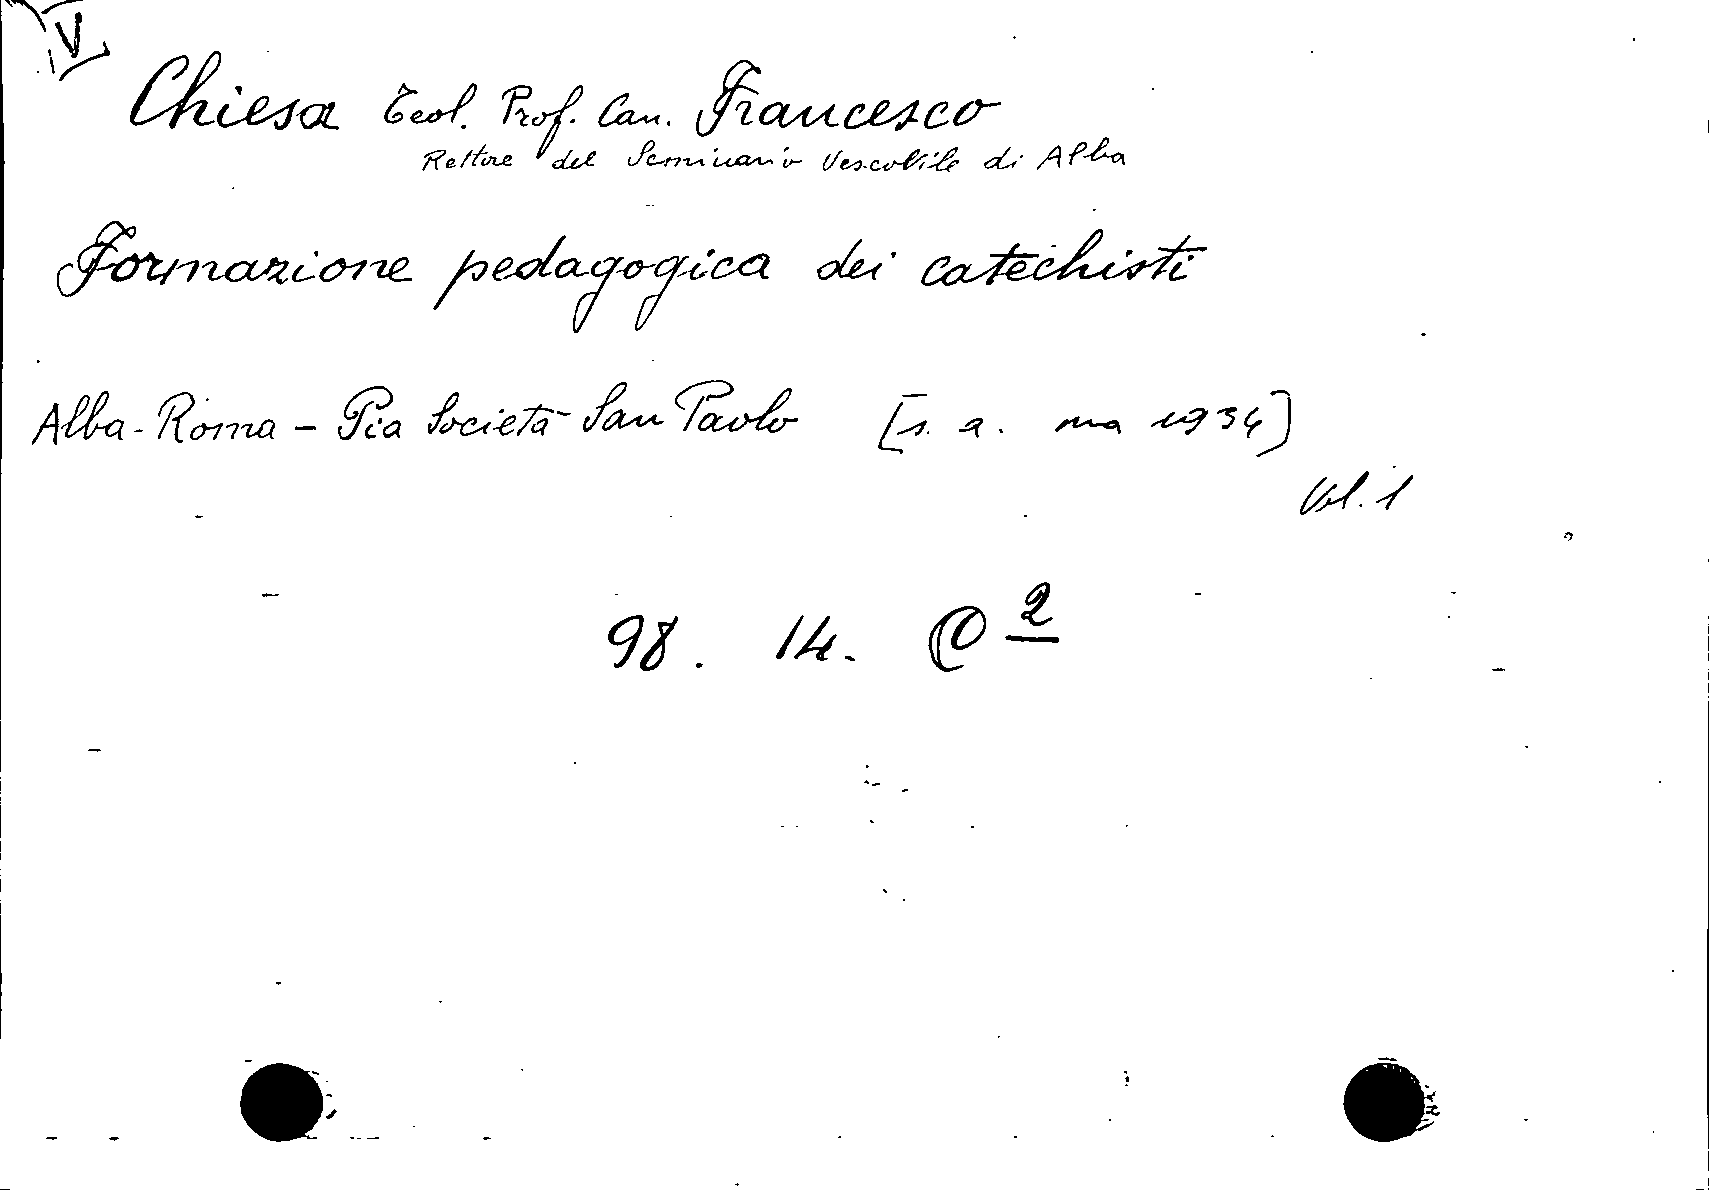 V
Chiesa Teol. Prof. Can. Francesco
Rettore del Seminario Vescovile di Alba
Formazione pedagogica dei catechisti
Alba-Roma - Pia Società San Paolo [s. a. ma 1934]
Vol. 1
98. 14. C 2